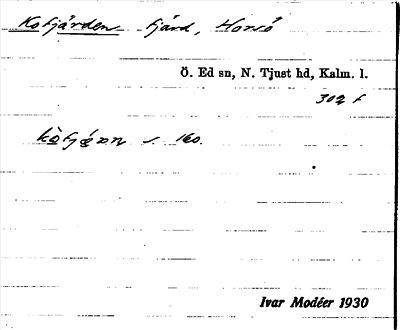 Kofjärden fjärd, Horsö
Ö. Ed sn, N. Tjust hd, Kalm. l.
302 f
s. 160.
Ivar Modéer 1930